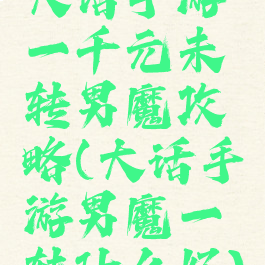 大话手游
一千元未
转男魔攻
略(大话手
游男魔一
转助么怪)